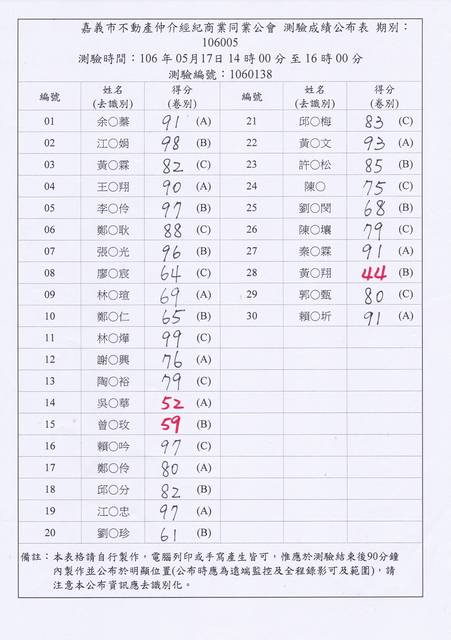 嘉義市不動產仲介經紀商業同業公會 測驗成績公布表 期別：
106005
測驗時間：106 年 05 月 17 日 14 時 00 分 至 16 時 00 分
測驗編號：1060138
編號 姓名(去識別) 得分(卷別) 編號 姓名(去識別) 得分(卷別)
01 余○蓁 91 (A) 21 邱○梅 83 (C)
02 江○娟 98 (B) 22 黃○文 93 (A)
03 黃○霖 82 (C) 23 許○松 85 (B)
04 王○翔 90 (A) 24 陳○ 75 (C)
05 李○伶 97 (B) 25 劉○閔 68 (B)
06 鄭○耿 88 (C) 26 陳○壤 79 (C)
07 張○光 96 (B) 27 秦○霖 91 (A)
08 廖○宸 64 (C) 28 黃○翔 44 (B)
09 林○瑄 69 (A) 29 郭○甄 80 (C)
10 鄭○仁 65 (B) 30 賴○圻 91 (A)
11 林○燁 99 (C)
12 謝○興 76 (A)
13 陶○裕 79 (C)
14 吳○華 52 (A)
15 曾○玫 59 (B)
16 賴○吟 97 (C)
17 鄭○伶 80 (A)
18 邱○分 82 (B)
19 江○忠 97 (A)
20 劉○珍 61 (B)
備註：本表格請自行製作，電腦列印或手寫產生皆可，惟應於測驗結束後90分鐘
內製作並公布於明顯位置(公布時應為遠端監控及全程錄影可及範圍)，請
注意本公布資訊應去識別化。